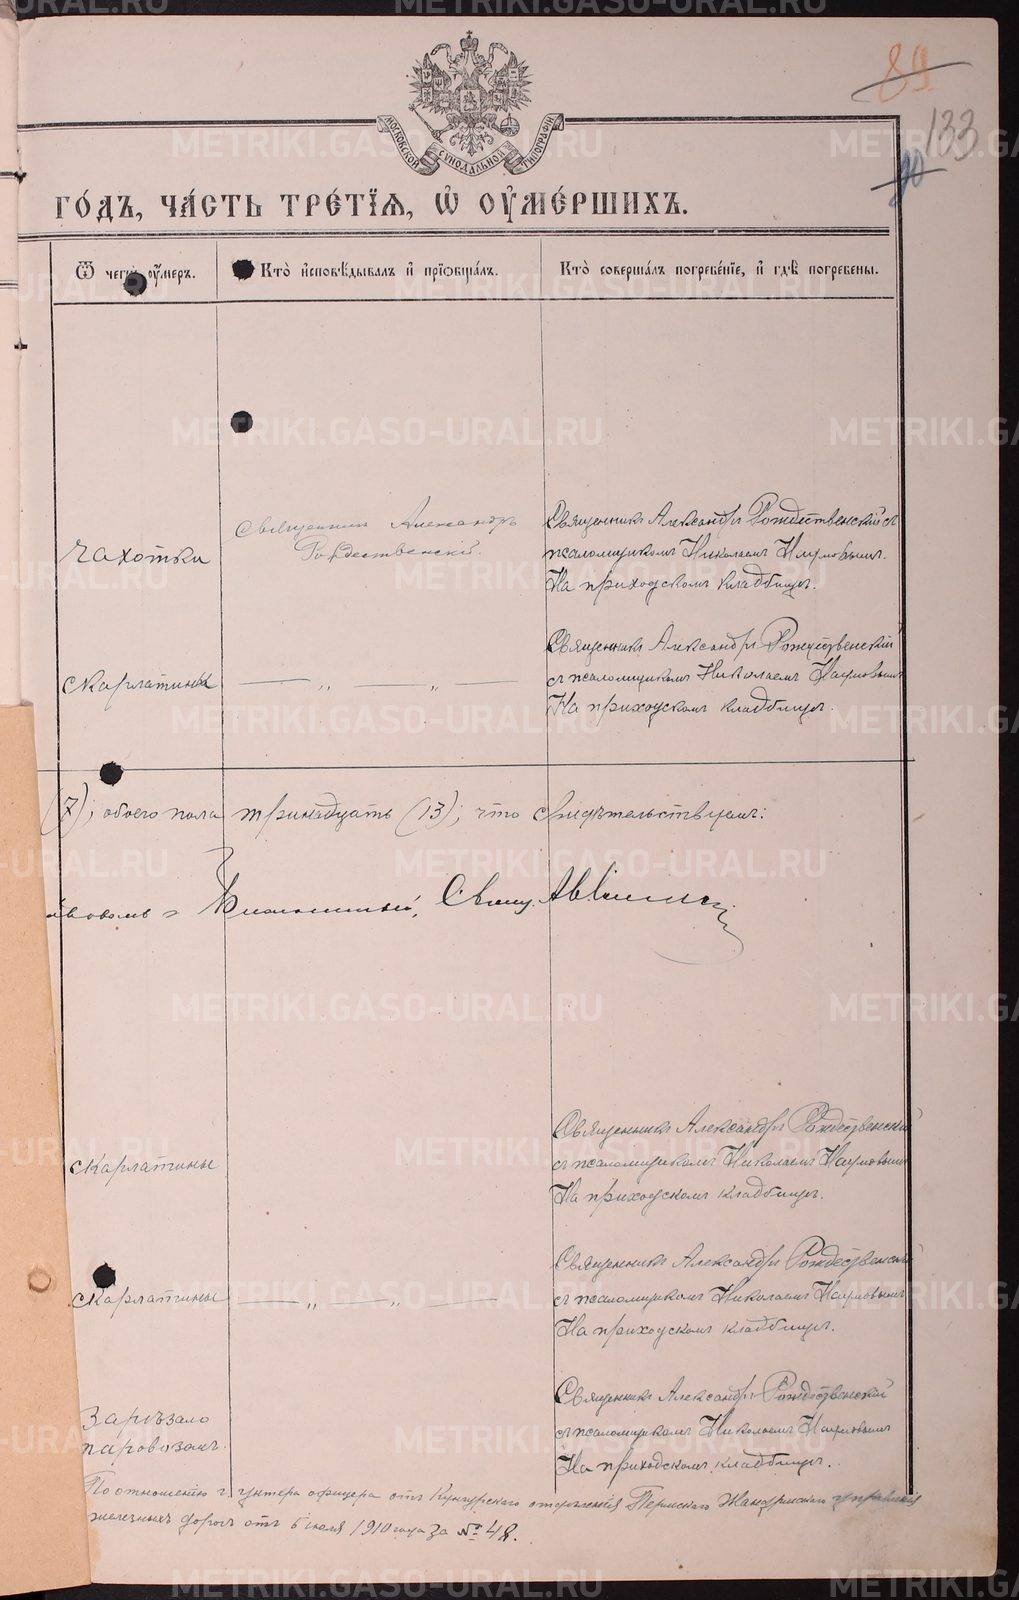 89.
133
90
МОСКОВСКОЙ СѴНОДАЛЬНОЙ ТИПОГРАФІИ
ГО́ДЪ, ЧА́СТЬ ТРЕ́ТІѦ, Ѡ҆ ОУ҆МЕ́РШИХЪ.
Ѿ чегѡ̀ оу҆́меръ.
Кто̀ и҆сповѣ́дывалъ и҆ прїѡбща́лъ.
Кто̀ соверша́лъ погребе́нїе, и҆ гдѣ̀ погребены.
чахотки
Священникъ Александръ
Рождественскій.
Священникъ Александръ Рождественскій съ
псаломщикомъ Николаемъ Наумовымъ.
На приходскомъ кладбищѣ.
скарлатины
— „ — „ —
Священникъ Александръ Рождественскій
съ псаломщикомъ Николаемъ Наумовымъ
На приходскомъ кладбищѣ.
(7); обоего пола тринадцать (13); что свидѣтельствуемъ:
Свящ.
скарлатины
Священникъ Александръ Рождественскій
съ псаломщикомъ Николаемъ Наумовымъ
На приходскомъ кладбищѣ.
скарлатины
— „ — „ —
Священникъ Александръ Рождественскій
съ псаломщикомъ Николаемъ Наумовымъ
На приходскомъ кладбищѣ.
Зарѣзало
паровозомъ.
Священникъ Александръ Рождественскій
съ псаломщикомъ Николаемъ Наумовымъ
На приходскомъ кладбищѣ.
По отношенію г. унтера офицера отъ Кунгурскаго отдѣленія Пермскаго Жандрмскаго управленія
желѣзныхъ дорогъ отъ 6 іюля 1910 года за № 48.